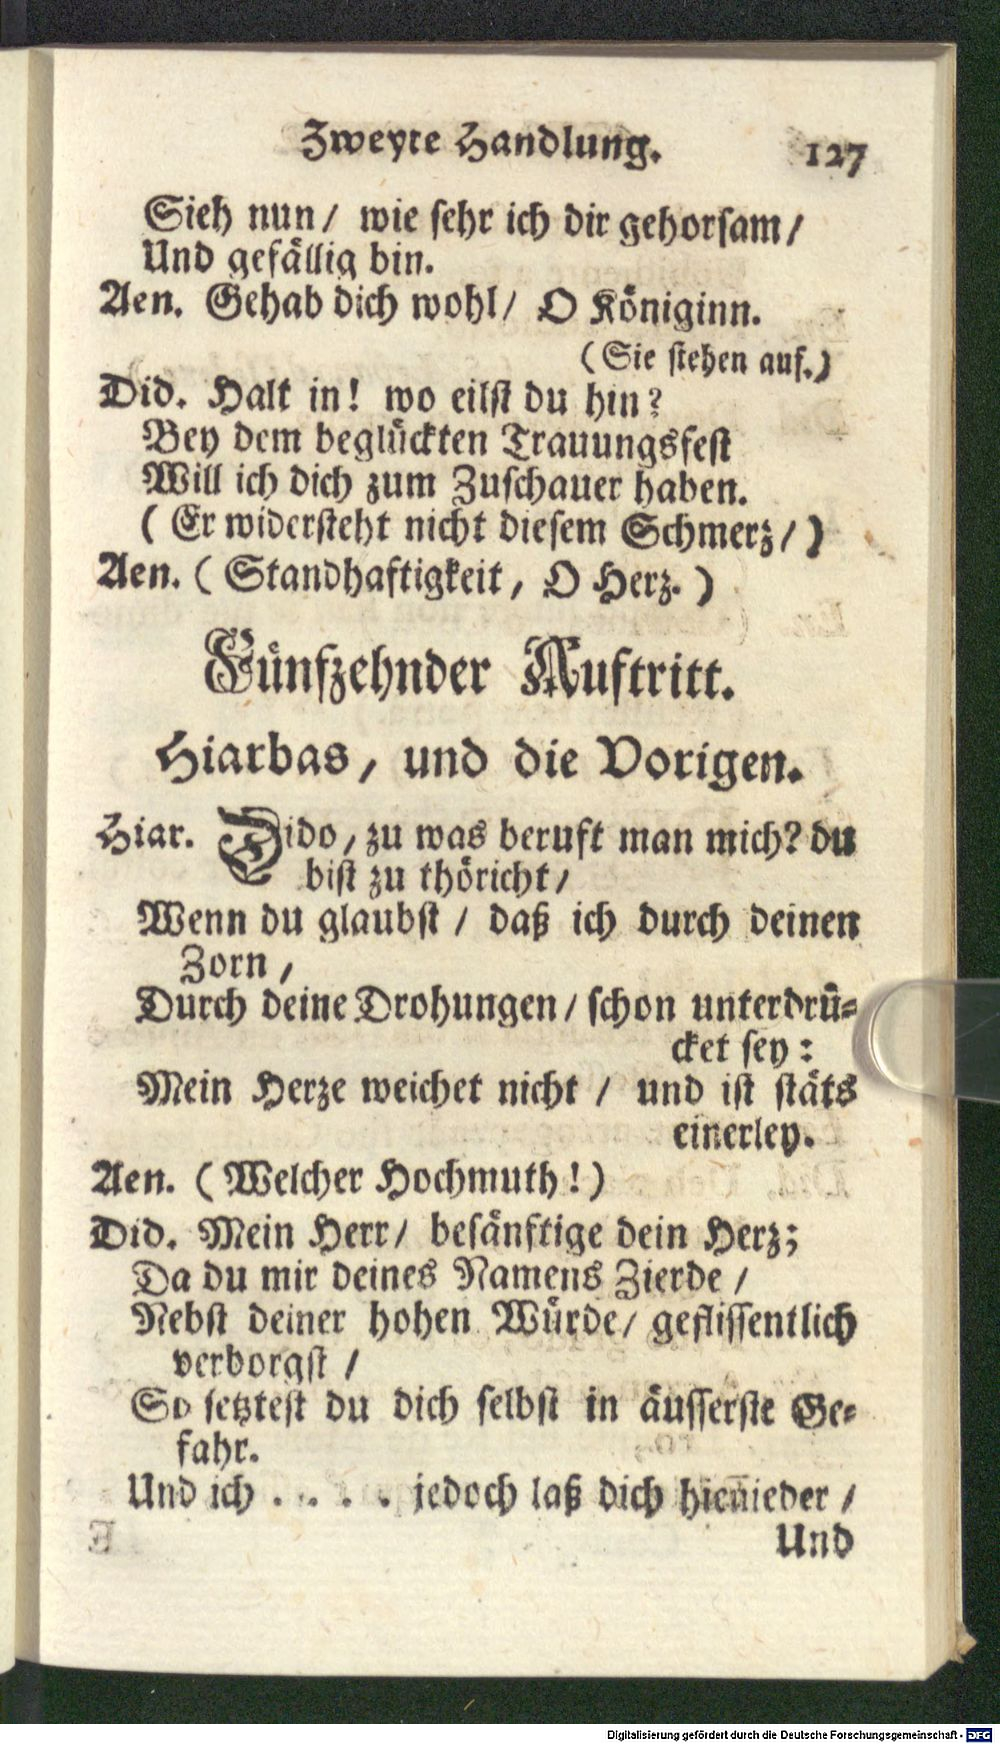 Zweyte Handlung. 127
Sieh nun/ wie sehr ich dir gehorsam/
Und gefällig bin.
Aen. Gehab dich wohl/ O Königinn.
(Sie stehen auf.)
Did. Halt in! wo eilst du hin?
Bey dem beglückten Trauungsfest
Will ich dich zum Zuschauer haben.
( Er widersteht nicht diesem Schmerz/ )
Aen. ( Standhaftigkeit, O Herz. )
Fünfzehnder Auftritt.
Hiarbas, und die Vorigen.
Hiar. Dido, zu was beruft man mich? du
bist zu thöricht/
Wenn du glaubst / daß ich durch deinen
Zorn,
Durch deine Drohungen/ schon unterdrü-
cket sey:
Mein Herze weichet nicht / und ist stäts
einerley.
Aen. (Welcher Hochmuth!)
Did. Mein Herr/ besänftige dein Herz;
Da du mir deines Namens Zierde /
Nebst deiner hohen Würde/ geflissentlich
verborgst /
So setztest du dich selbst in äusserste Ge-
fahr.
Und ich . . . . jedoch laß dich hienieder /
Und
Digitalisierung gefördert durch die Deutsche Forschungsgemeinschaft - DFG